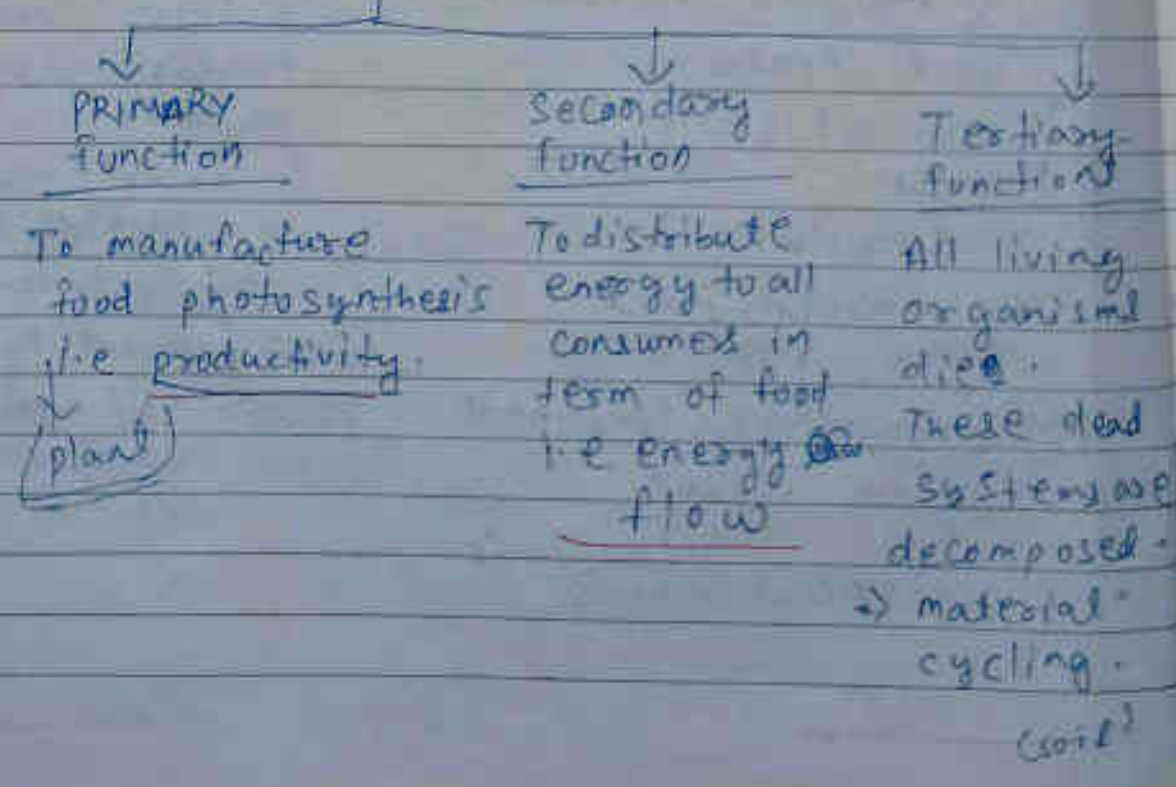 PRIMARY
function
To manufacture
food photosynthesis
i.e productivity.
plant
Secondary
function
To distribute
energy to all
consumers in
term of food
i.e energy
flow
Tertiary
function
All living
organisms
dies.
These dead
systems are
decomposed.
=> material
cycling.
(soil)